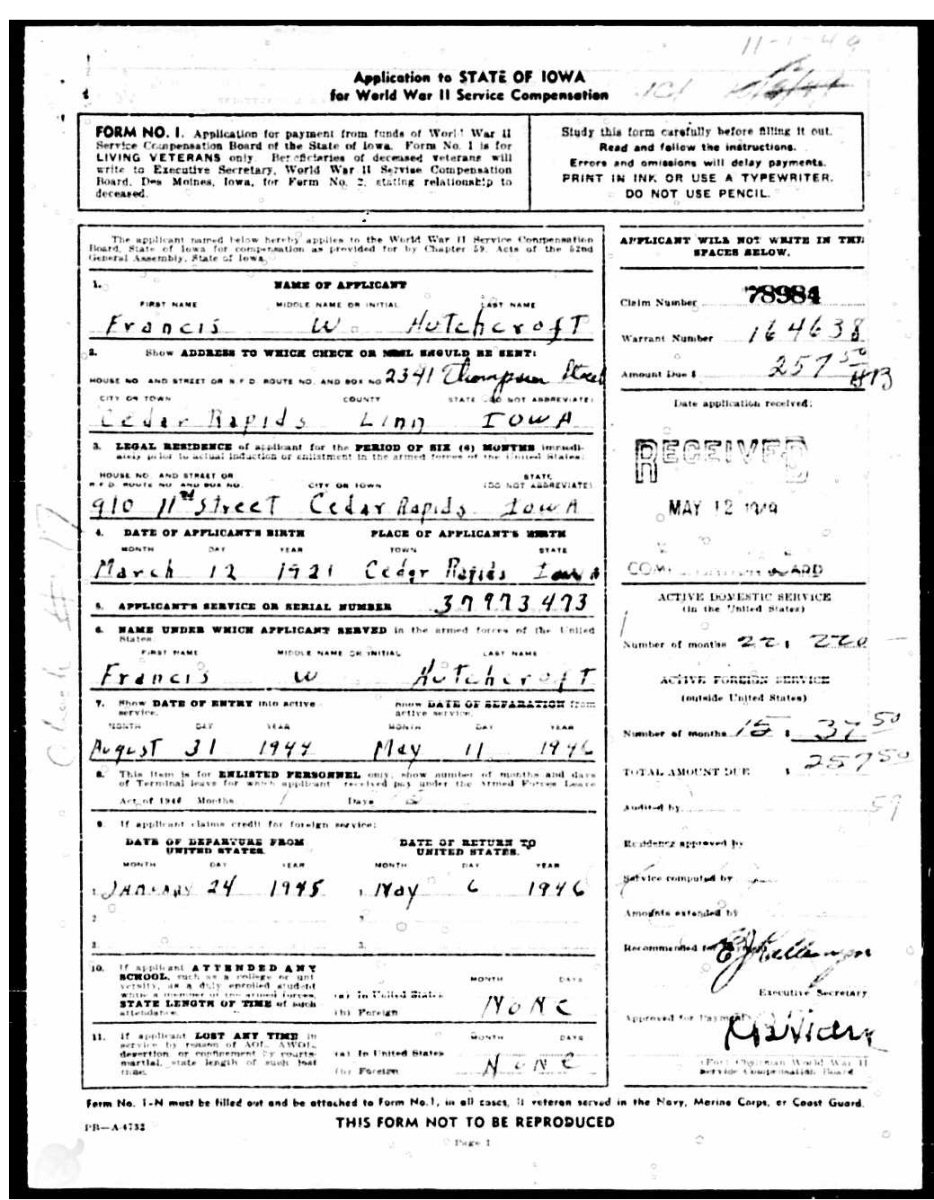 11-1-49
Application to STATE OF IOWA
for World War II Service Compensation
FORM NO. 1. Application for payment from funds of World War II
Service Compensation Board of the State of Iowa. Form No. 1 is for
LIVING VETERANS only. Beneficiaries of deceased veterans will
write to Executive Secretary, World War II Service Compensation
Board, Des Moines, Iowa, for Form No. 2, stating relationship to
deceased.
Study this form carefully before filling it out.
Read and follow the instructions.
Errors and omissions will delay payments.
PRINT IN INK OR USE A TYPEWRITER.
DO NOT USE PENCIL.
The applicant named below hereby applies to the World War II Service Compensation
Board, State of Iowa for compensation as provided for by Chapter 59, Acts of the 52nd
General Assembly, State of Iowa.
1. NAME OF APPLICANT
FIRST NAME MIDDLE NAME OR INITIAL LAST NAME
Francis W. Hutchcroft
2. Show ADDRESS TO WHICH CHECK OR MAIL SHOULD BE SENT:
HOUSE NO. AND STREET OR R F D. ROUTE NO. AND BOX NO 2341 Thompson Street
CITY OR TOWN COUNTY STATE (DO NOT ABBREVIATE)
Cedar Rapids Linn Iowa
3. LEGAL RESIDENCE of applicant for the PERIOD OF SIX (6) MONTHS immedi-
ately prior to actual induction or enlistment in the armed forces of the United States:
HOUSE NO. AND STREET OR
R F D. ROUTE NO. AND BOX NO. CITY OR TOWN STATE (DO NOT ABBREVIATE)
910 11th Street Cedar Rapids Iowa
4. DATE OF APPLICANT'S BIRTH PLACE OF APPLICANT'S BIRTH
MONTH DAY YEAR TOWN STATE
March 12 1921 Cedar Rapids Iowa
5. APPLICANT'S SERVICE OR SERIAL NUMBER 37973473
6. NAME UNDER WHICH APPLICANT SERVED in the armed forces of the United
States
FIRST NAME MIDDLE NAME OR INITIAL LAST NAME
Francis W Hutchcroft
7. Show DATE OF ENTRY into active
service. Show DATE OF SEPARATION from
active service.
MONTH DAY YEAR MONTH DAY YEAR
August 31 1944 May 11 1946
8. This Item is for ENLISTED PERSONNEL only; show number of months and days
of Terminal leave for which applicant received pay under the Armed Forces Leave
Act of 1946 Months Days
9. If applicant claims credit for foreign service:
DATE OF DEPARTURE FROM
UNITED STATES DATE OF RETURN TO
UNITED STATES.
MONTH DAY YEAR MONTH DAY YEAR
1. January 24 1945 1. May 6 1946
2 2
3. 3.
10. If applicant ATTENDED ANY
SCHOOL, such as a college or uni
versity, as a duly enrolled student
while a member of the armed forces,
STATE LENGTH OF TIME of such
attendance. MONTH DAYS
(a) In United States
(b) Foreign NONE
11. If applicant LOST ANY TIME in
service by reason of AOL, AWOL,
desertion, or confinement by courts-
martial, state length of such lost
time. MONTH DAYS
(a) In United States
(b) Foreign NONE
APPLICANT WILL NOT WRITE IN THE
SPACES BELOW.
Claim Number 78984
Warrant Number 164638
Amount Due $ 257 50
Date application received:
RECEIVED
MAY 12 1949
BOARD
ACTIVE DOMESTIC SERVICE
(in the United States)
Number of months 22 $ 220
ACTIVE FOREIGN SERVICE
(outside United States)
Number of months 15 $ 37 50
TOTAL AMOUNT DUE $ 257 50
Audited by 59
Residence approved by
Service computed by
Amounts extended by
Recommended for Payment
Executive Secretary
Approved for Payment
(For) Chairman World War II
Service Compensation Board
Form No. 1-N must be filled out and be attached to Form No. 1, in all cases, if veteran served in the Navy, Marine Corps, or Coast Guard.
PR—A-4732
THIS FORM NOT TO BE REPRODUCED
Page 1